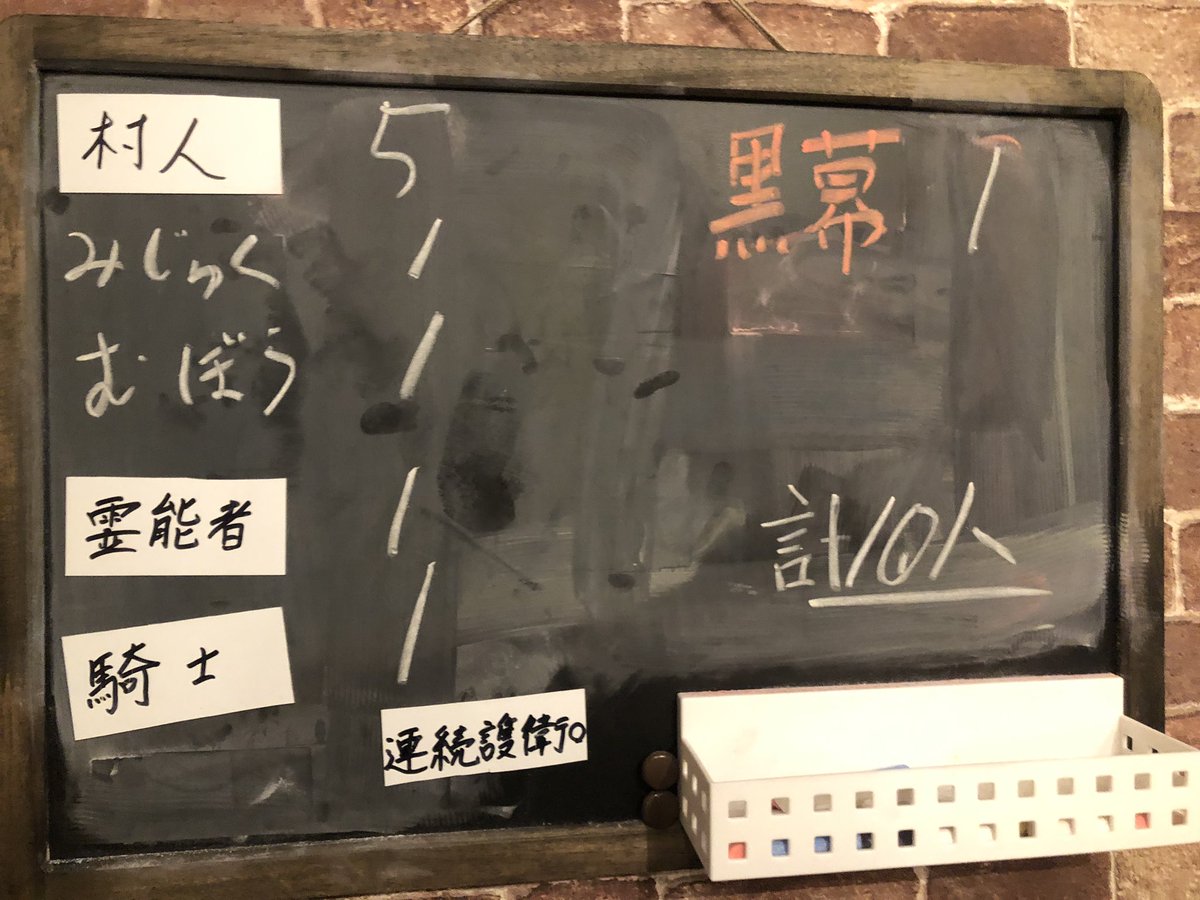 村人 5
みじゅく 1
むぼう 1
霊能者 1
騎士 1
連続護衛○
黒幕 1
計10人